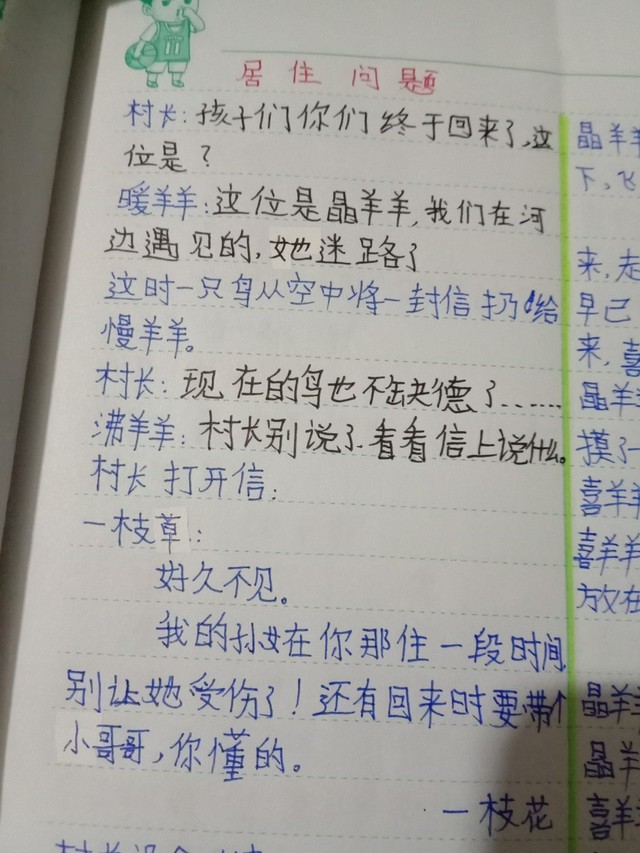 居住问题
村长:孩子们你们终于回来了,这
位是?
暖羊羊:这位是晶羊羊,我们在河
边遇见的,她迷路了
这时一只鸟从空中将一封信扔给
慢羊羊。
村长:现在的鸟也不缺德了……
沸羊羊:村长别说了看看信上说什么。
村长打开信:
一枝草:
好久不见。
我的孙女在你那住一段时间
别让她受伤了!还有回来时要带个
小哥哥,你懂的。
一枝花
晶羊羊
下,飞
来,走
早已
来,喜
晶羊
摸了一
喜羊羊
喜羊羊
放在
晶羊羊
晶羊
喜羊